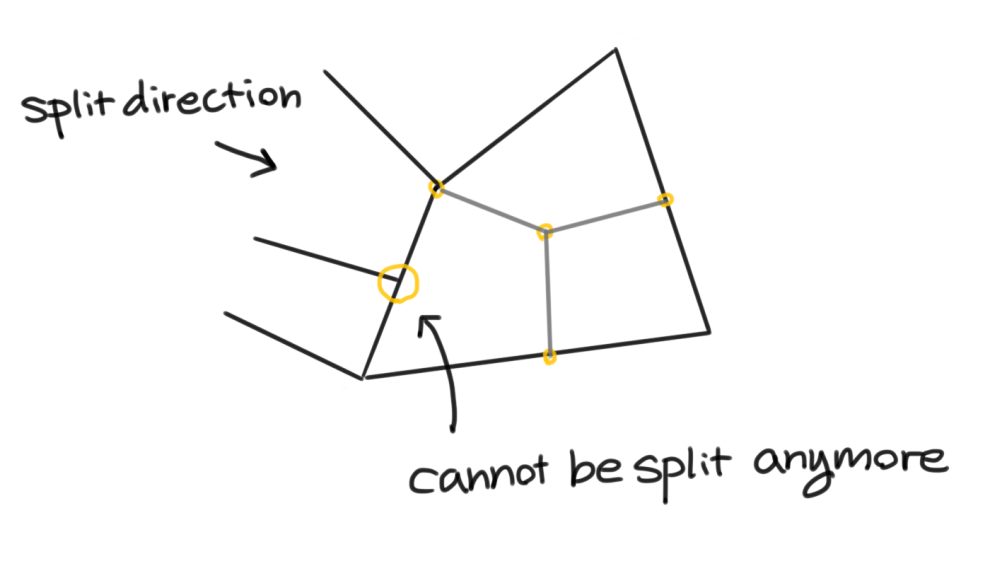 split direction
cannot be split anymore